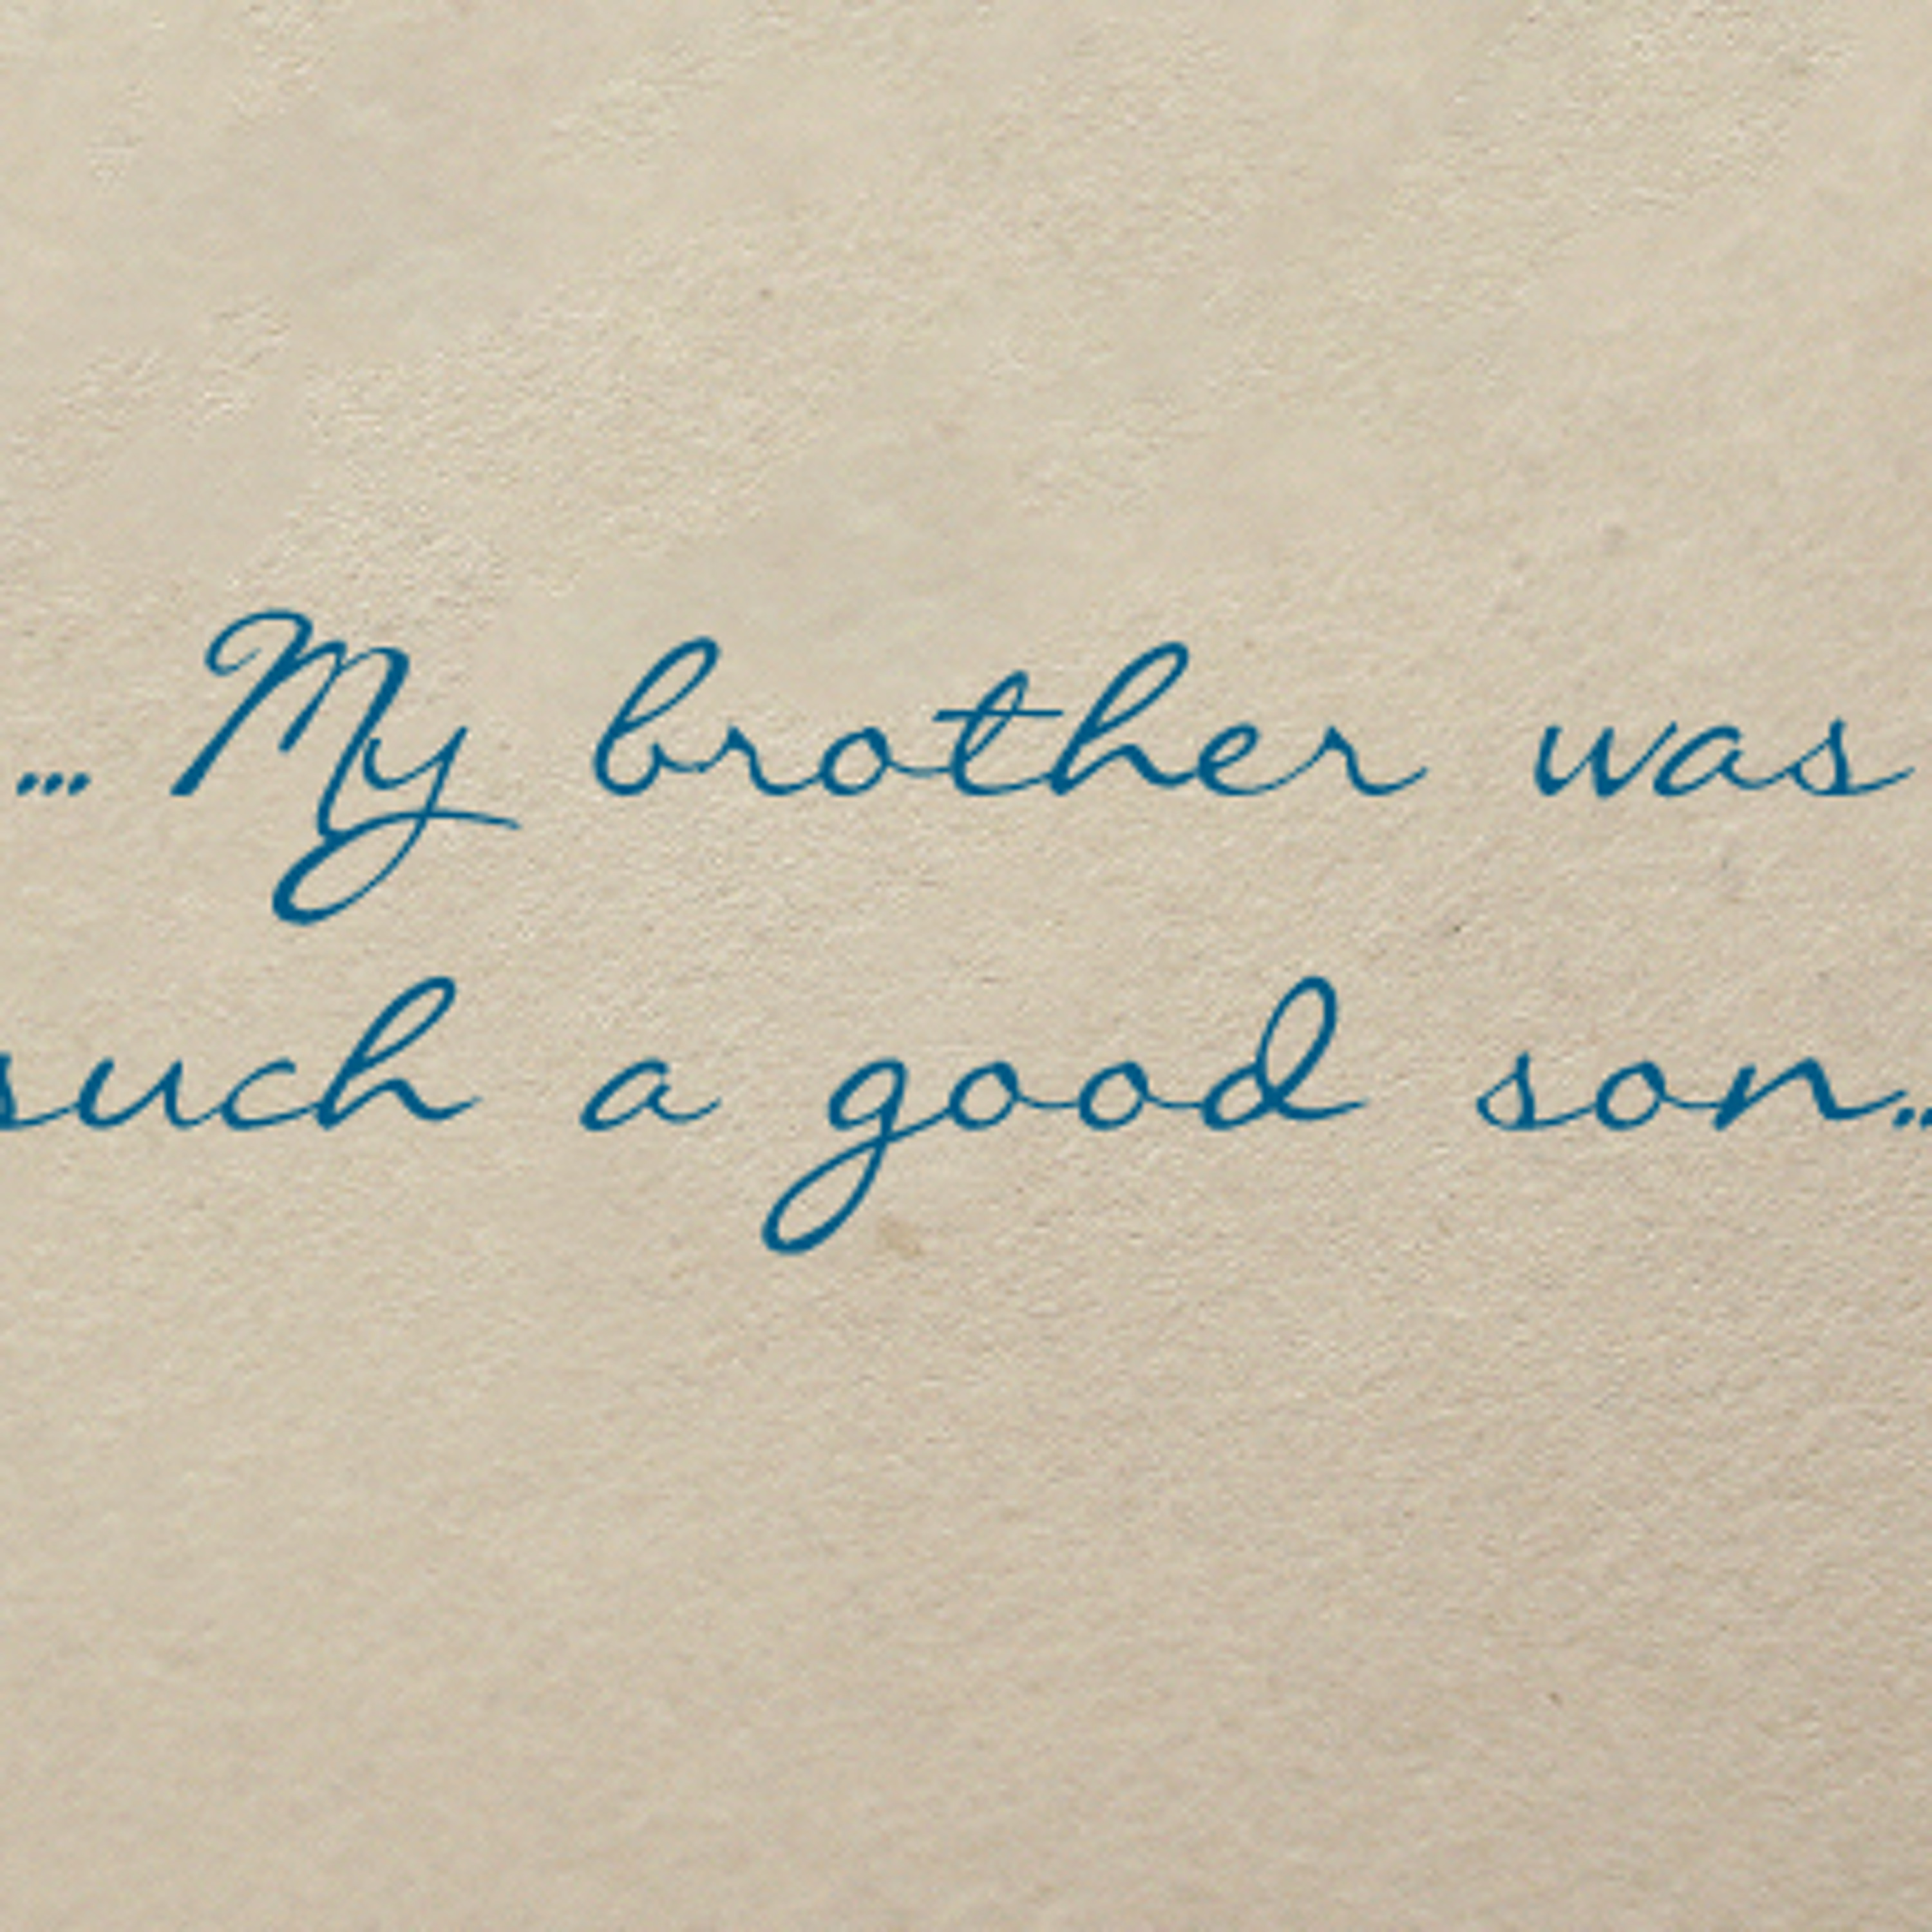 ... My brother was
such a good son..